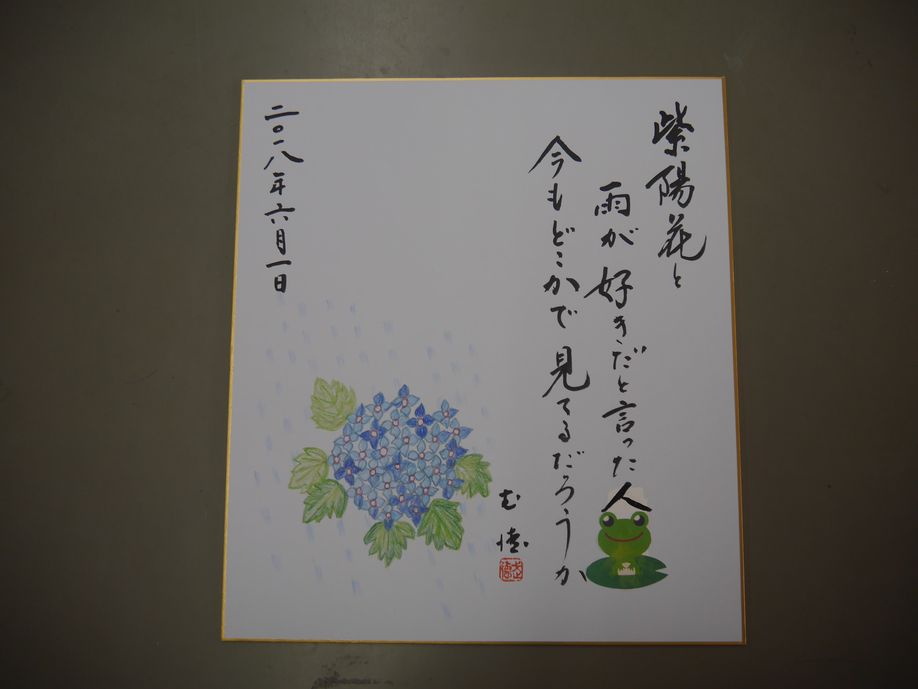 紫陽花と
雨が好きだと言った人
今もどこかで見てるだろうか
二〇一八年六月一日